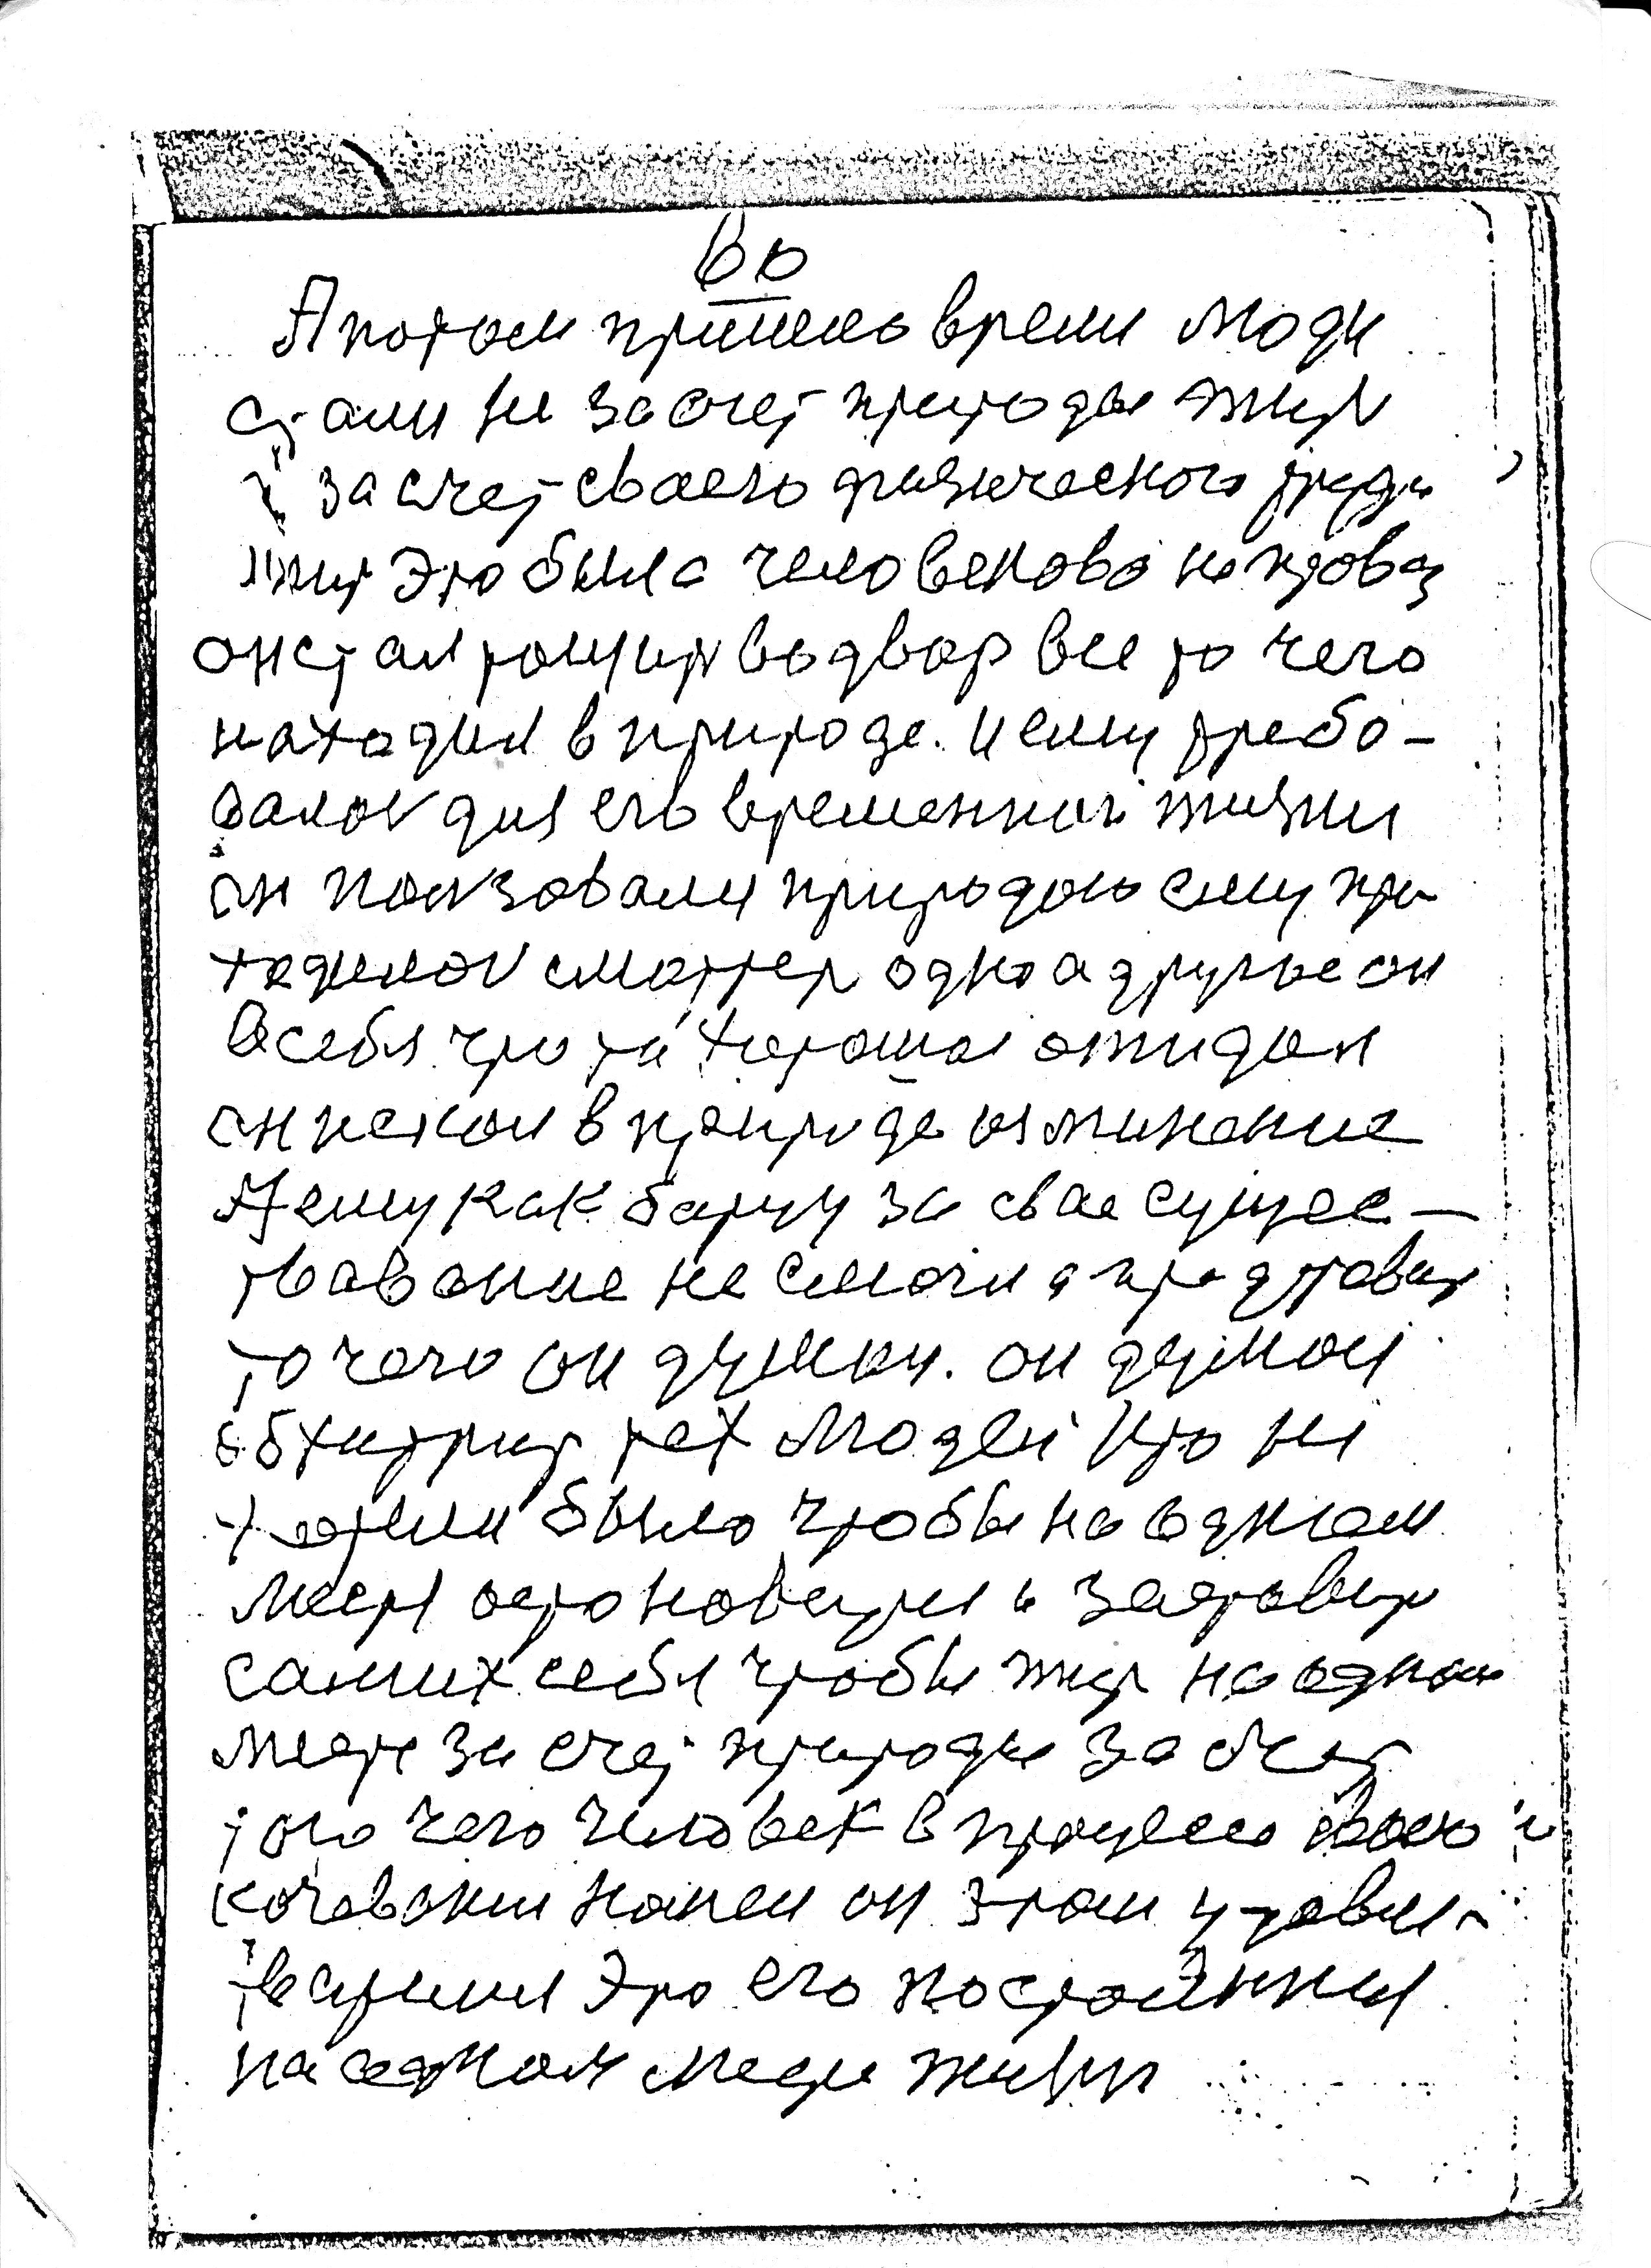 66
А потом пришло время люди
стали не за счет природы жит
а за счет своего физического труда
жит Это была человекова
он стал тощит во двор все то чего
находил в природе. И ему требо-
валос для его временной жизни
он ползовался природою ему при
ходилос смотрет одно а другое он
в себя что то хорошае ожидал
он искал в природе изминение
А ему как борцу за свае сущес-
твование не смогла представит
то чего он думал. он думал
обхитрит тех людей кто ни
хотели было чтобы на одном
месте остоновится и заставит
самих себя чтобы жит на одном
месте за счет природы за счет
того чего человек в процессе своего
кочевания нашел он этом удавле-
творился Это его постоянная
на одном месте жизн